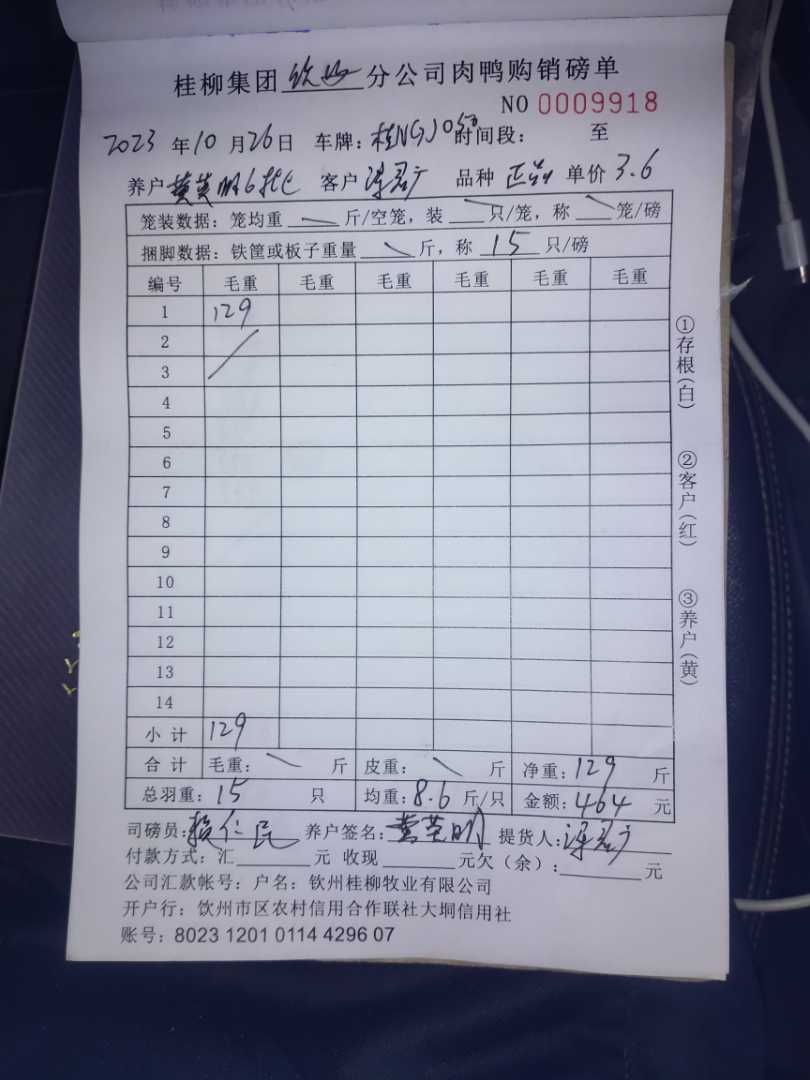 桂柳集团钦州分公司肉鸭购销磅单
NO 0009918
2023年10月26日 车牌:桂N 时间段: 至
养户 6批 客户 品种 正品 单价3.6
笼装数据:笼均重 斤/空笼,装 只/笼,称 笼/磅
捆脚数据:铁筐或板子重量 斤,称 15 只/磅
编号 毛重 毛重 毛重 毛重 毛重 毛重
1 129
2
3
4
5
6
7
8
9
10
11
12
13
14
小计 129
合计 毛重: 斤 皮重: 斤 净重:129 斤
总羽重:15 只 均重:8.6 斤/只 金额:464 元
司磅员: 养户签名: 提货人:
付款方式:汇 元 收现 元欠(余): 元
公司汇款帐号:户名:钦州桂柳牧业有限公司
开户行:饮州市区农村信用合作联社大垌信用社
账号:8023 1201 0114 4296 07
①存根(白)
②客户(红)
③养户(黄)